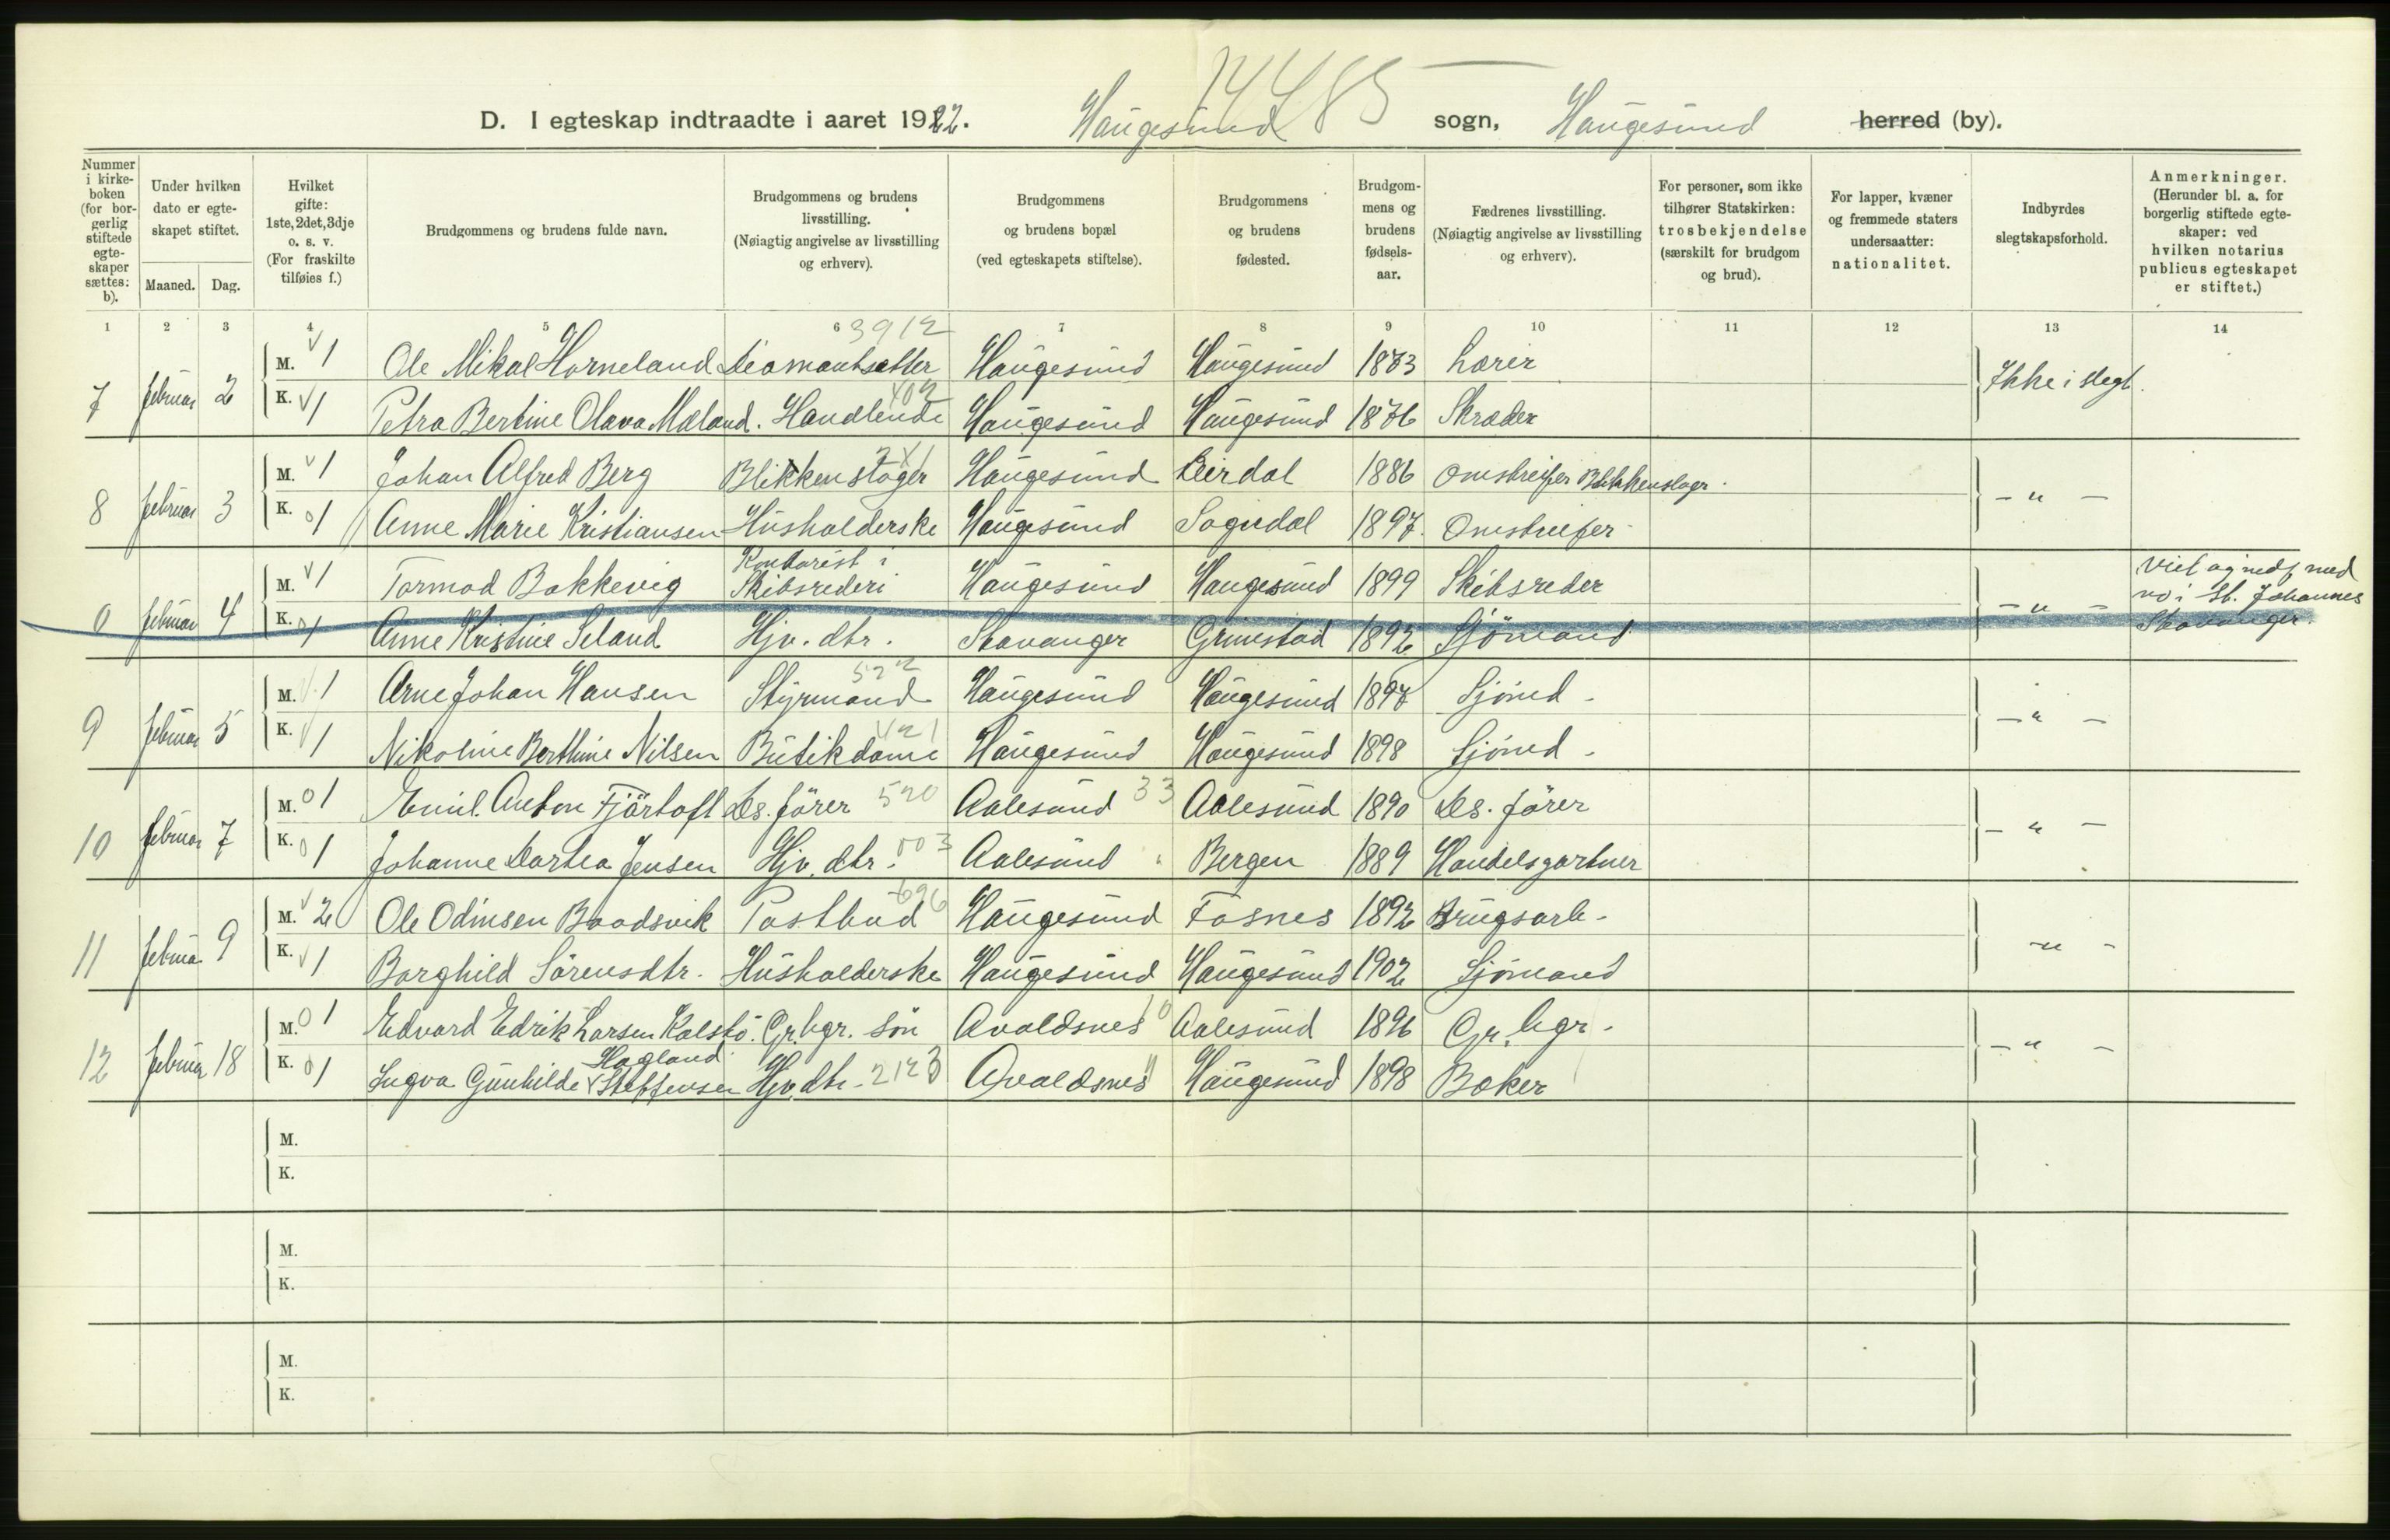 14485
D. I egteskap indtraadte i aaret 1922. Haugesund sogn, Haugesund herred (by).
Nummer i kirke-boken (for bor-gerlig stiftede egte-skaper sættes: b).
Under hvilken dato er egte-skapet stiftet.
Maaned. Dag.
Hvilket gifte: 1ste, 2det, 3dje o. s. v. (For fraskilte tilføies f.)
Brudgommens og brudens fulde navn.
Brudgommens og brudens livsstilling. (Nøiagtig angivelse av livsstilling og erhverv).
Brudgommens og brudens bopæl (ved egteskapets stiftelse).
Brudgommens og brudens fødested.
Brudgom-mens og brudens fødsels-aar.
Fædrenes livsstilling. (Nøiagtig angivelse av livsstilling og erhverv).
For personer, som ikke tilhører Statskirken: trosbekjendelse (særskilt for brudgom og brud).
For lapper, kvæner og fremmede staters undersaatter: nationalitet.
Indbyrdes slegtskapsforhold.
Anmerkninger. (Herunder bl. a. for borgerlig stiftede egte-skaper: ved hvilken notarius publicus egteskapet er stiftet.)
1 2 3 4 5 6 7 8 9 10 11 12 13 14
3912
7 Februar 2 M. 1 Ole Mikal Horneland Diamantsætter Haugesund Haugesund 1873 Lærer Ikke i slegt.
K. 1 Petra Bertine Olava Mæland. Handlende Haugesund Haugesund 1876 Skræder
8 Februar 3 M. 1 Johan Alfred Berg Blikkenslager Haugesund Leirdal 1886 Omstreifer Blikkenslager. - " -
K. 1 Anne Marie Kristiansen Husholderske Haugesund Sogndal 1897. Omstreifer
0 Februar 4 M. 1 Tormod Bakkevig Kontorist i Skibsrederi Haugesund Haugesund 1899 Skibsreder - " - Viet og medt med no i St. Johannes Stavanger.
K. 1 Anne Kristine Seland Hjv. dtr. Stavanger Grimstad 1892 Sjömand
522
9 Februar 5 M. 1 Arne Johan Hansen Styrmand Haugesund Haugesund 1897 Sjömd. - " -
421
K. 1 Nikoline Berthine Nilsen Butikdame Haugesund Haugesund 1898 Sjömd.
10 Februar 7 M. 1 Emil Anton Fjörtoft Ds. förer 520 Aalesund 33 Aalesund 1890 Ds. förer - " -
K. 1 Johanne Dortea Jensen Hjv. dtr. 003 Aalesund Bergen 1889 Handelsgartner
696
11 Februar 9 M. 2 Ole Odinsen Baadsvik Postbud Haugesund Fosnes 1892 Brugsarb. - " -
K. 1 Borghild Sörensdtr. Husholderske Haugesund Haugesund 1902 Sjömand
12 Februar 18 M. 1 Edvard Edrik Larsen Kalstö. Gr. bgr. sön Avaldsnes Aalesund 1896 Gr. bgr. - " -
K. 1 Ingva Gunhilde Hagland Steffensen Hjv. dtr. 2123 Avaldsnes Haugesund 1898 Baker
M.
K.
M.
K.
M.
K.